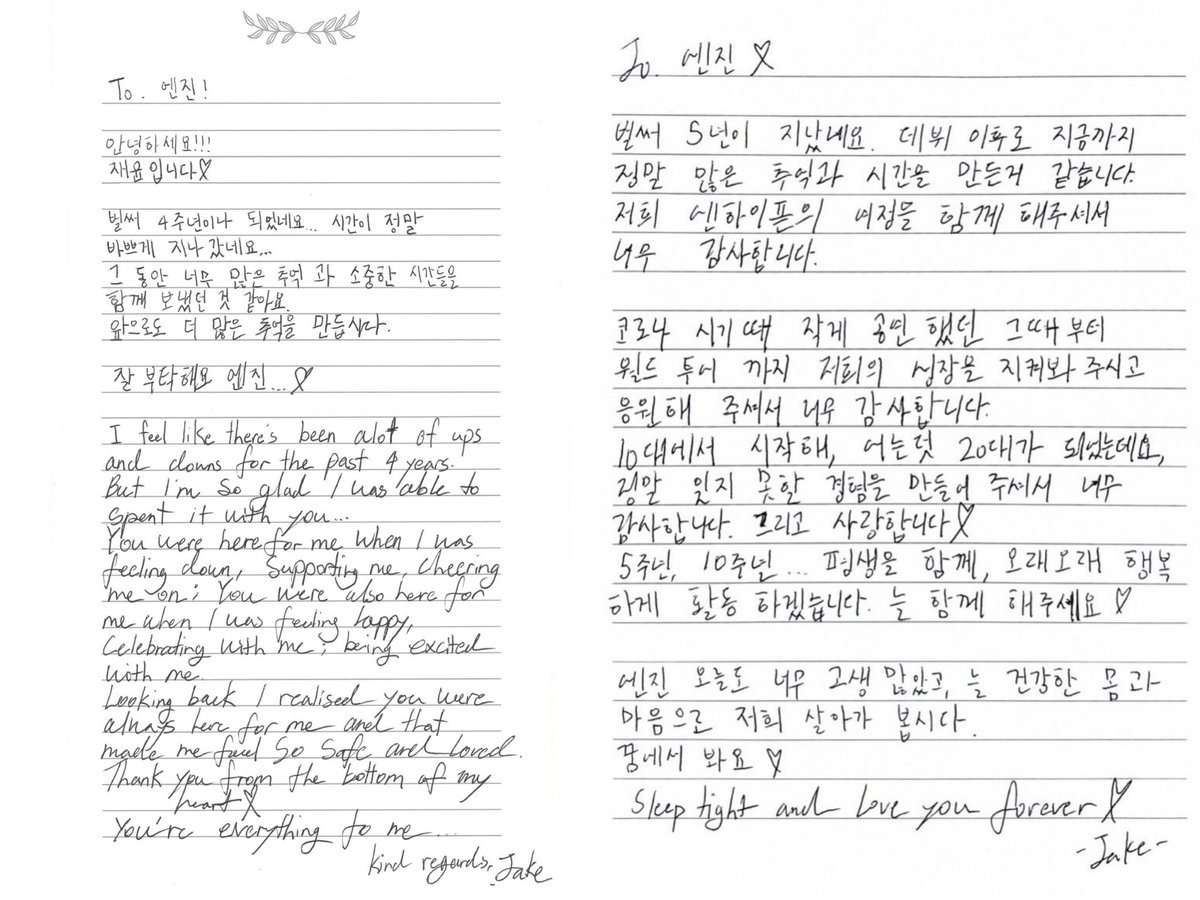 To. 엔진!
안녕하세요!!!
재윤입니다♡
벌써 4주년이나 되었네요... 시간이 정말
바쁘게 지나갔네요...
그 동안 너무 많은 추억과 소중한 시간들을
함께 보냈던 것 같아요.
앞으로도 더 많은 추억을 만듭시다.
잘 부탁해요 엔진...♡
I feel like there's been alot of ups
and downs for the past 4 years.
But I'm so glad I was able to
spent it with you...
You were here for me when I was
feeling down, Supporting me, cheering
me on; You were also here for
me when I was feeling happy,
Celebrating with me; being excited
with me.
Looking back I realised you were
always here for me and that
made me fuel So Safe and Loved.
Thank you from the bottom of my
heart♡
You're everything to me....
kind regards, Jake
To. 엔진♡
벌써 5년이 지났네요. 데뷔 이후로 지금까지
정말 많은 추억과 시간을 만든거 같습니다.
저희 엔하이픈의 여정을 함께 해주셔서
너무 감사합니다.
코로나 시기때 작게 공연했던 그때부터
월드 투어 까지 저희의 성장을 지켜봐 주시고
응원해 주셔서 너무 감사합니다.
10대에서 시작해, 어느덧 20대가 되었는데요,
정말 잊지 못할 경험을 만들어 주셔서 너무
감사합니다. 그리고 사랑합니다♡
5주년, 10주년... 평생을 함께, 오래오래 행복
하게 활동 하겠습니다. 늘 함께 해주세요♡
엔진 오늘도 너무 고생 많았고, 늘 건강한 몸과
마음으로 저희 살아가 봅시다.
꿈에서 봐요♡
Sleep tight and Love you forever♡
-Jake-